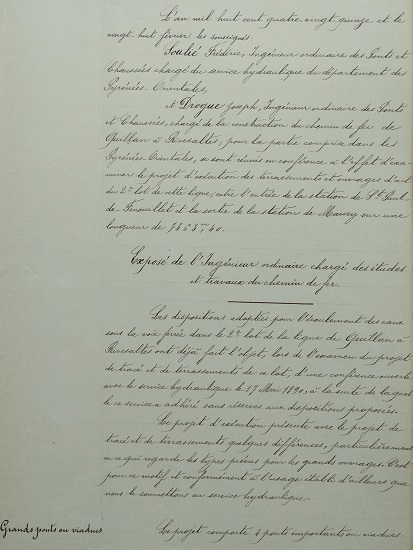 L'an mil huit cent quatre vingt quinze et le
vingt-huit février les soussignés
Soulié Fréderic, Ingénieur ordinaire des Ponts et
Chaussées chargé du service hydraulique du département des
Pyrénées-Orientales,
et Drogue Joseph, Ingénieur ordinaire des Ponts
et Chaussées, chargé de la construction du chemin de fer de
Quillan à Rivesaltes, pour la partie comprise dans les
Pyrénées Orientales, se sont réunis en conférence à l'effet d'exa-
miner le projet d'exécution des terrassements et ouvrages d'art
du 2e lot de cette ligne, entre l'entrée de la station de St Paul-
de-Fenouillet et la sortie de la station de Maury sur une
longueur de
Exposé de l'Ingénieur ordinaire chargé des études
et travaux du chemin de fer.
Les dispositions adoptées pour l'écoulement des eaux
sous la voie ferrée dans le 2e lot de la ligne de Quillan à
Rivesaltes ont déjà fait l'objet, lors de l'examen du projet
de tracé et de terrassements de ce lot, d'une conférence ouverte
avec le service hydraulique le 17 Mai 1890, à la suite de laquelle
le service a adhéré sans réserves aux dispositions proposées.
Le projet d'exécution présente avec le projet de
tracé et de terrassements quelques différences, particulièrement
en ce qui regarde les types prévus pour les grands ouvrages. C'est
pour ce motif et conformément à l'usage établi d'ailleurs que
nous le soumettons au service hydraulique.
Grands ponts ou viaducs
Le projet comporte 4 ponts importants ou viaducs.